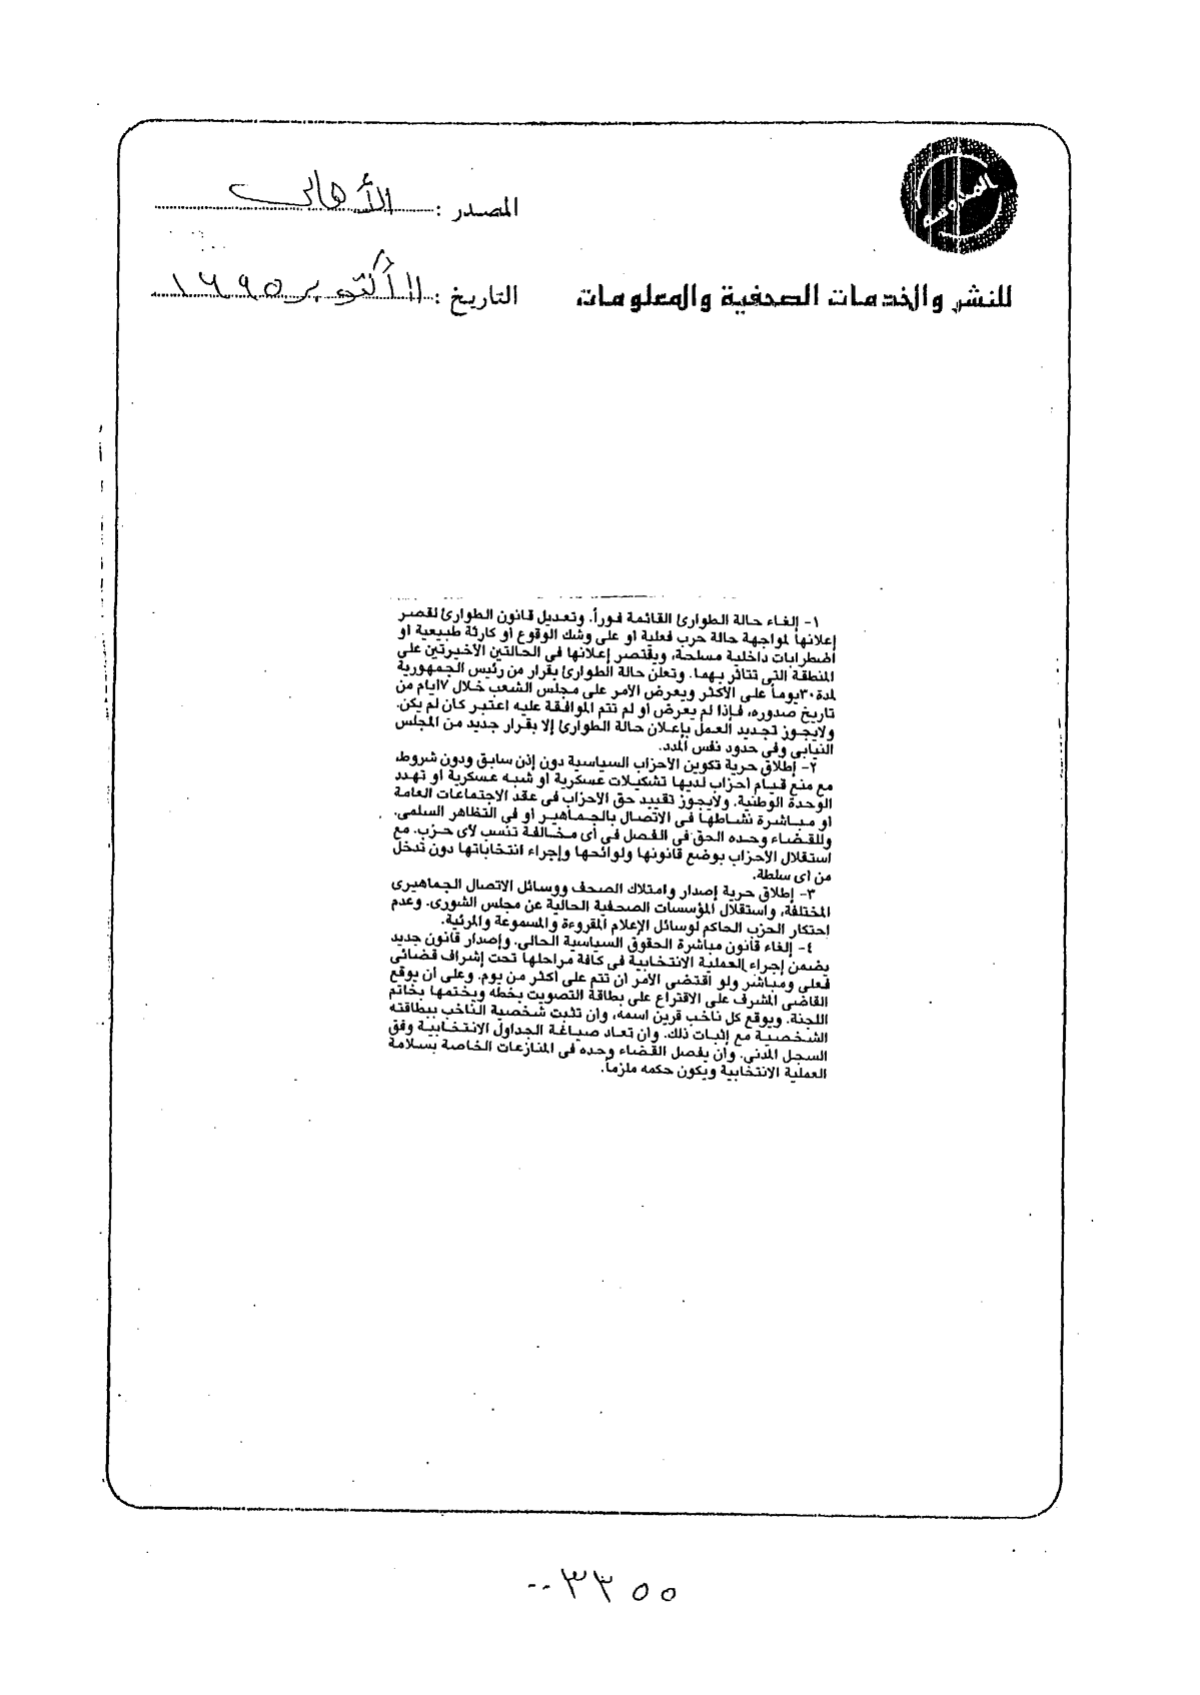 المدوسة
المصدر : الأهالى
للنشر والخدمات الصحفية والمعلومات
التاريخ : ١١ أكتوبر ١٩٩٥
١- إلغاء حالة الطوارئ القائمة فوراً. وتعديل قانون الطوارئ لقصر
إعلانها لمواجهة حالة حرب فعلية او على وشك الوقوع او كارثة طبيعية او
اضطرابات داخلية مسلحة، ويقتصر إعلانها فى الحالتين الأخيرتين على
المنطقة التى تتاثر بهما. وتعلن حالة الطوارئ بقرار من رئيس الجمهورية
لمدة ٣٠يوماً على الأكثر ويعرض الأمر على مجلس الشعب خلال ٧ايام من
تاريخ صدوره، فإذا لم يعرض او لم تتم الموافقة عليه اعتبر كان لم يكن.
ولايجوز تجديد العمل بإعلان حالة الطوارئ إلا بقرار جديد من المجلس
النيابى وفى حدود نفس المدد.
٢- إطلاق حرية تكوين الأحزاب السياسية دون إذن سابق ودون شروط،
مع منع قيام احزاب لديها تشكيلات عسكرية او شبه عسكرية او تهدد
الوحدة الوطنية. ولايجوز تقييد حق الأحزاب فى عقد الاجتماعات العامة
او مباشرة نشاطها فى الاتصال بالجماهير او فى التظاهر السلمى.
وللقضاء وحده الحق فى الفصل فى أى مخالفة تنسب لأى حزب. مع
استقلال الأحزاب بوضع قانونها ولوائحها وإجراء انتخاباتها دون تدخل
من أى سلطة.
٣- إطلاق حرية إصدار وامتلاك الصحف ووسائل الاتصال الجماهيرى
المختلفة، واستقلال المؤسسات الصحفية الحالية عن مجلس الشورى. وعدم
احتكار الحزب الحاكم لوسائل الإعلام المقروءة والمسموعة والمرئية.
٤- إلغاء قانون مباشرة الحقوق السياسية الحالى. وإصدار قانون جديد
يضمن إجراء العملية الانتخابية فى كافة مراحلها تحت إشراف قضائى
فعلى ومباشر ولو اقتضى الأمر ان تتم على اكثر من يوم. وعلى ان يوقع
القاضى المشرف على الاقتراع على بطاقة التصويت بخطه ويختمها بخاتم
اللجنة. ويوقع كل ناخب قرين اسمه، وان تثبت شخصية الناخب ببطاقته
الشخصية مع إثبات ذلك. وان تعاد صياغة الجداول الانتخابية وفق
السجل المدنى. وأن يفصل القضاء وحده فى المنازعات الخاصة بسلامة
العملية الانتخابية ويكون حكمه ملزماً.
٠٠٣٣٥٥